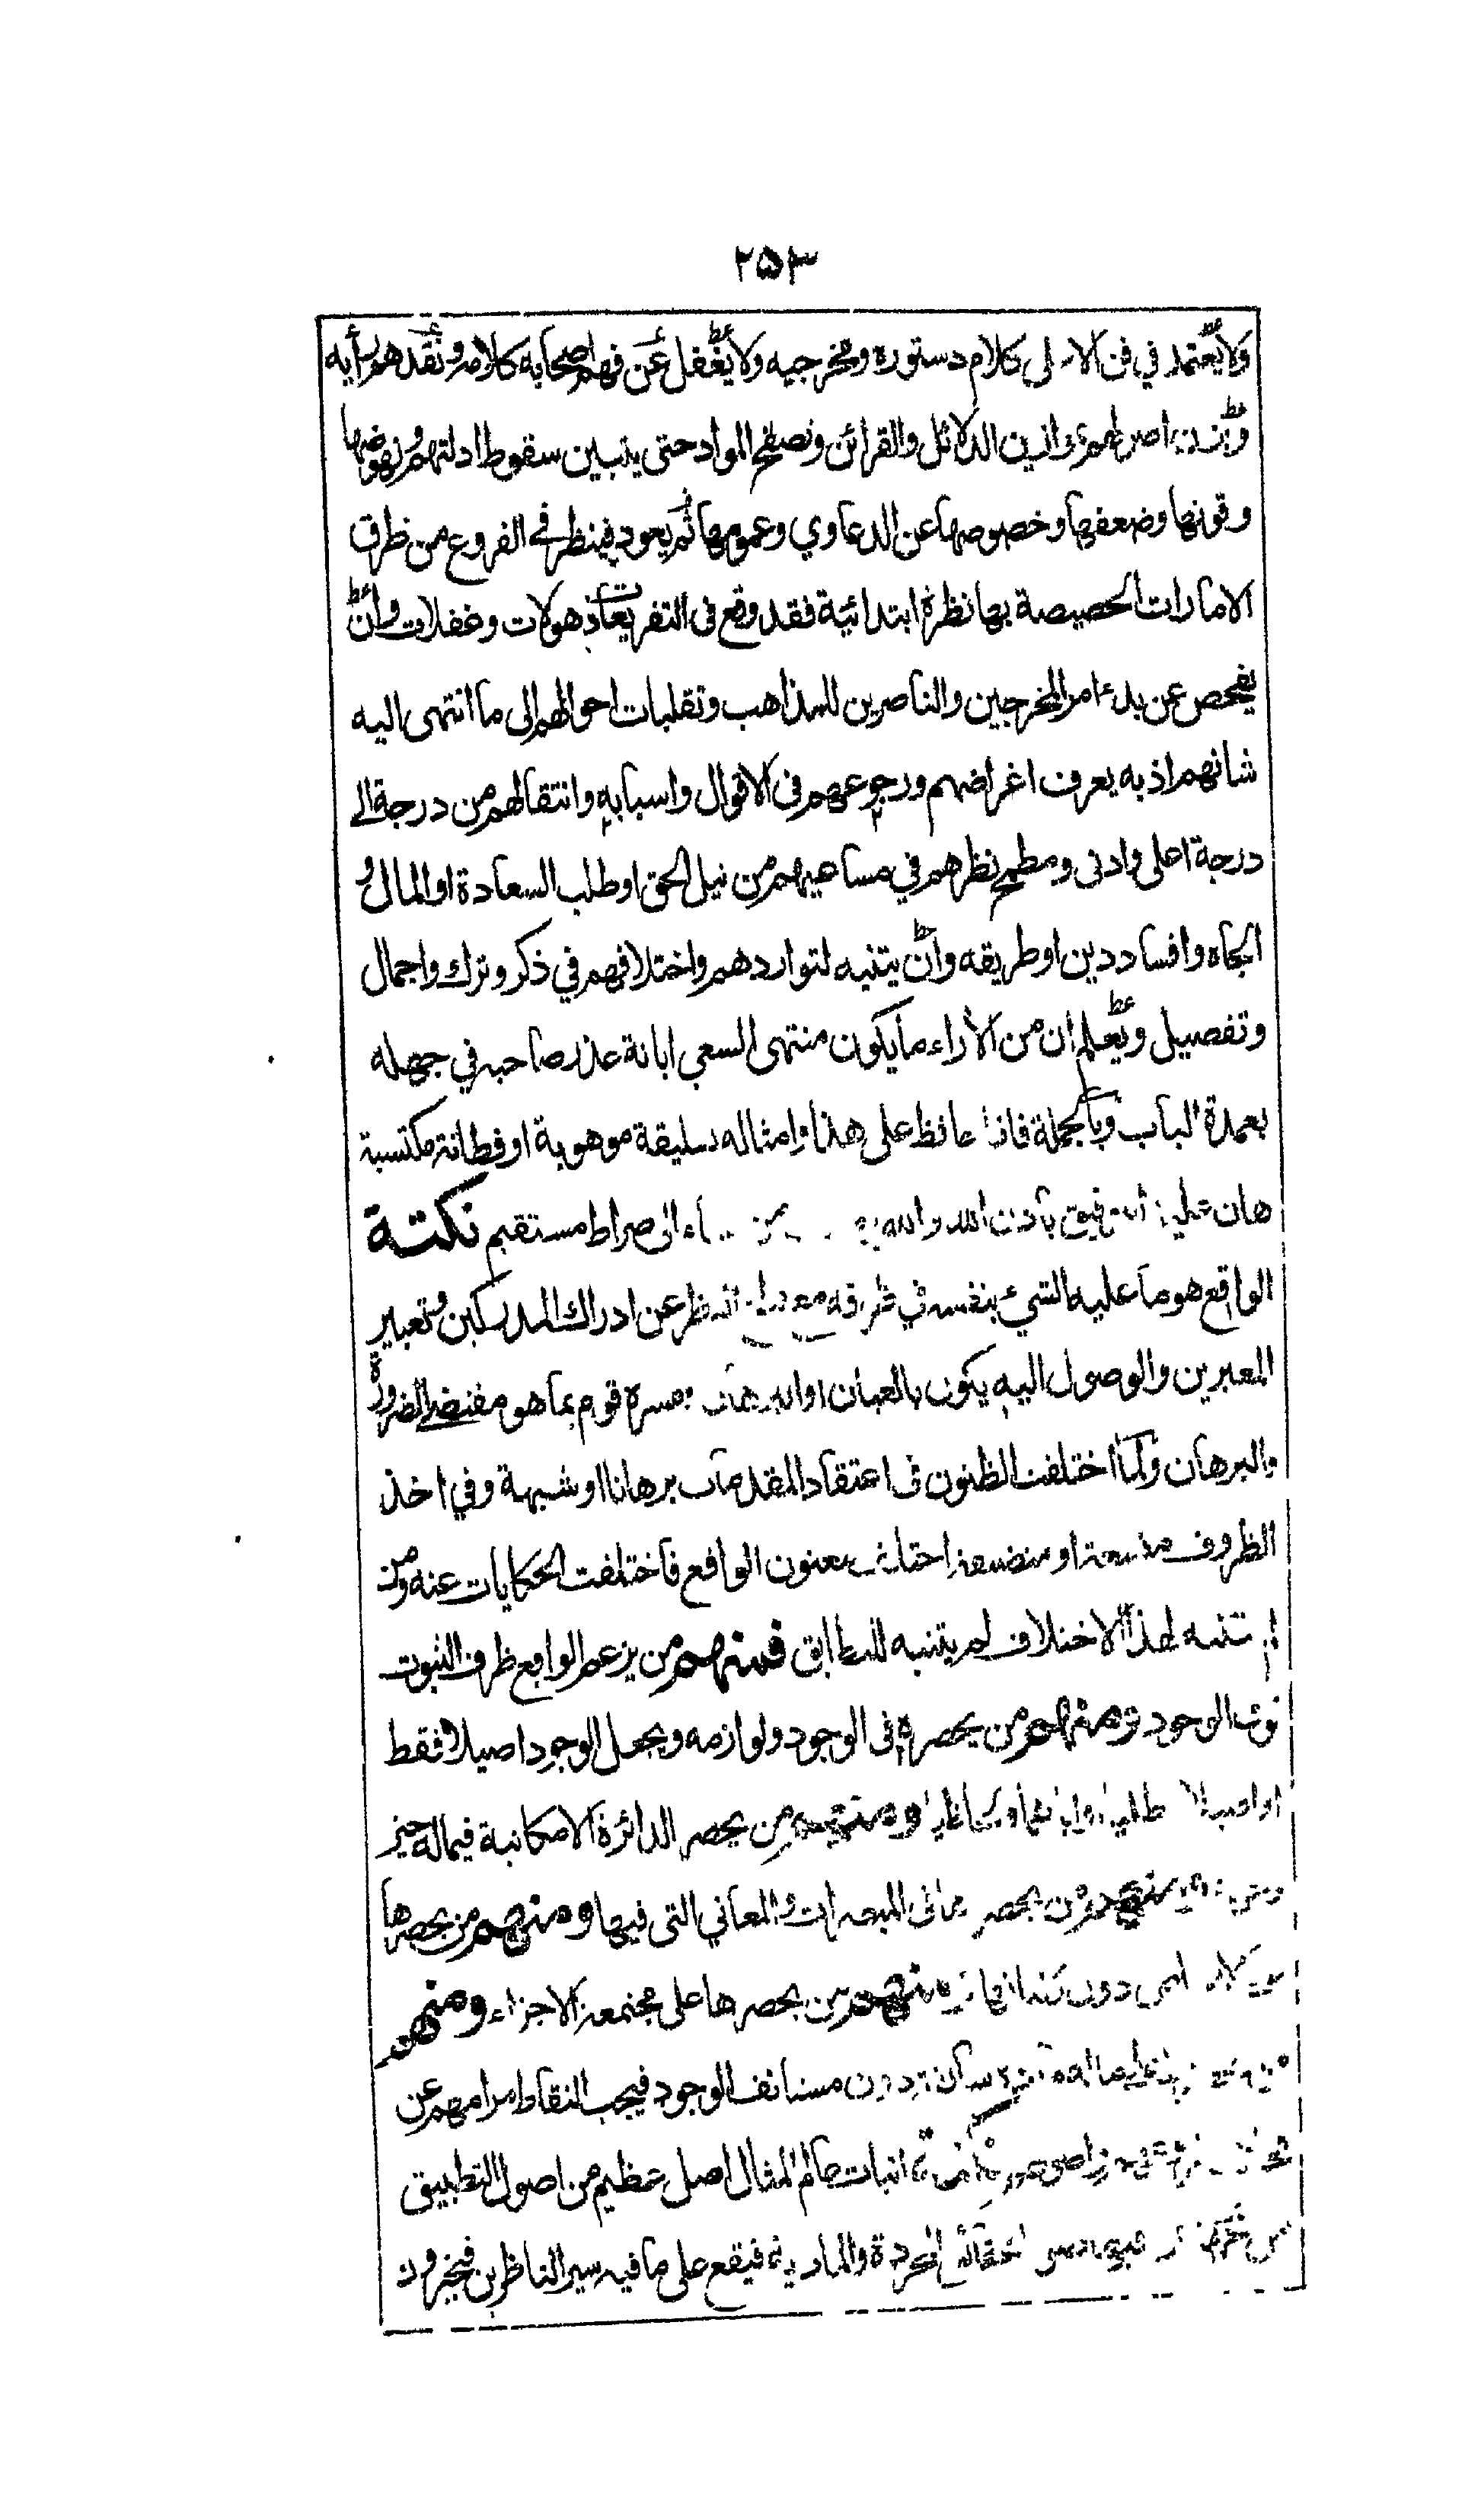 ۲۵۳
ولا يعتمد في فن الا على كلام دستوره ومخرجيه ولا يغفل عن فهم اصحابه كلامه ونقدهم رأيه
اصولهم الدلائل والقرائن وتصفح المواد حتى يتبين سقوط ادلتهم ونهوضها
وقوتها وضعفها وخصوصها عن الدعاوي وعمومها ثم يعود فينظر في الفروع من طرق
الامارات الخصيصة بها نظرة ابتدائية فقد وقع في التفريعات ذهولات وغفلات وان
يفحص عن بدء امر المخرجين والناصرين للمذاهب وتقلبات احوالهم الى ما انتهى اليه
شانهم اذ به يعرف اغراضهم ورجوعهم في الاقوال واسبابه وانتقالهم من درجة الى
درجة اعلى وادنى ومطمح نظرهم في مساعيهم من نيل الحق او طلب السعادة او المال و
الجاه وافساد دين او طريقه وان يتنبه لتواردهم واختلافهم في ذكر وترك واجمال
وتفصيل ويعلم ان من الأراء ما يكون منتهى السعي ابانة عذر صاحبه في جهله
بعمدة الباب وبالجملة فاذا حافظ على هذا وامثاله بسليقة موهوبة او فطانة مكتسبة
هان عليه التوفيق باذن الله والله الى صراط مستقيم نكتة
الواقع هو ما عليه الشيء بنفسه في ظرفه مع النظر عن ادراك المدركين وتعبير
المعبرين والوصول اليه يكون بالعيان او البرهان قوم بما هو مقتضى الضرورة
والبرهان ولما اختلفت الظنون في اعتقاد المقدمات برهانا او شبهة وفي اخذ
الظروف متسعة او متضيقة معنون الواقع فاختلفت الحكايات عنه ومن
لم يتنبه لهذا الاختلاف لم يتنبه للتطابق فمنهم من يزعم الواقع ظرف الثبوت
فوق الوجود ومنهم من يحصره في الوجود ولوازمه ويجعل الوجود اصيلا فقط
ومنهم من يحصر الدائرة الامكانية فيما له حيز
ومنهم من يحصر في المبصرات والمعاني التي فيها ومنهم من يحصرها
دون ومنهم من يحصرها على مجتمعة الاجزاء ومنهم
دون مستانف الوجود فيجب التقاط مرامهم عن
اثبات عالم المثال اصل عظيم من اصول التطبيق
المجردة والمادية فيقع على ما فيه سير الناظرين فيخبرون